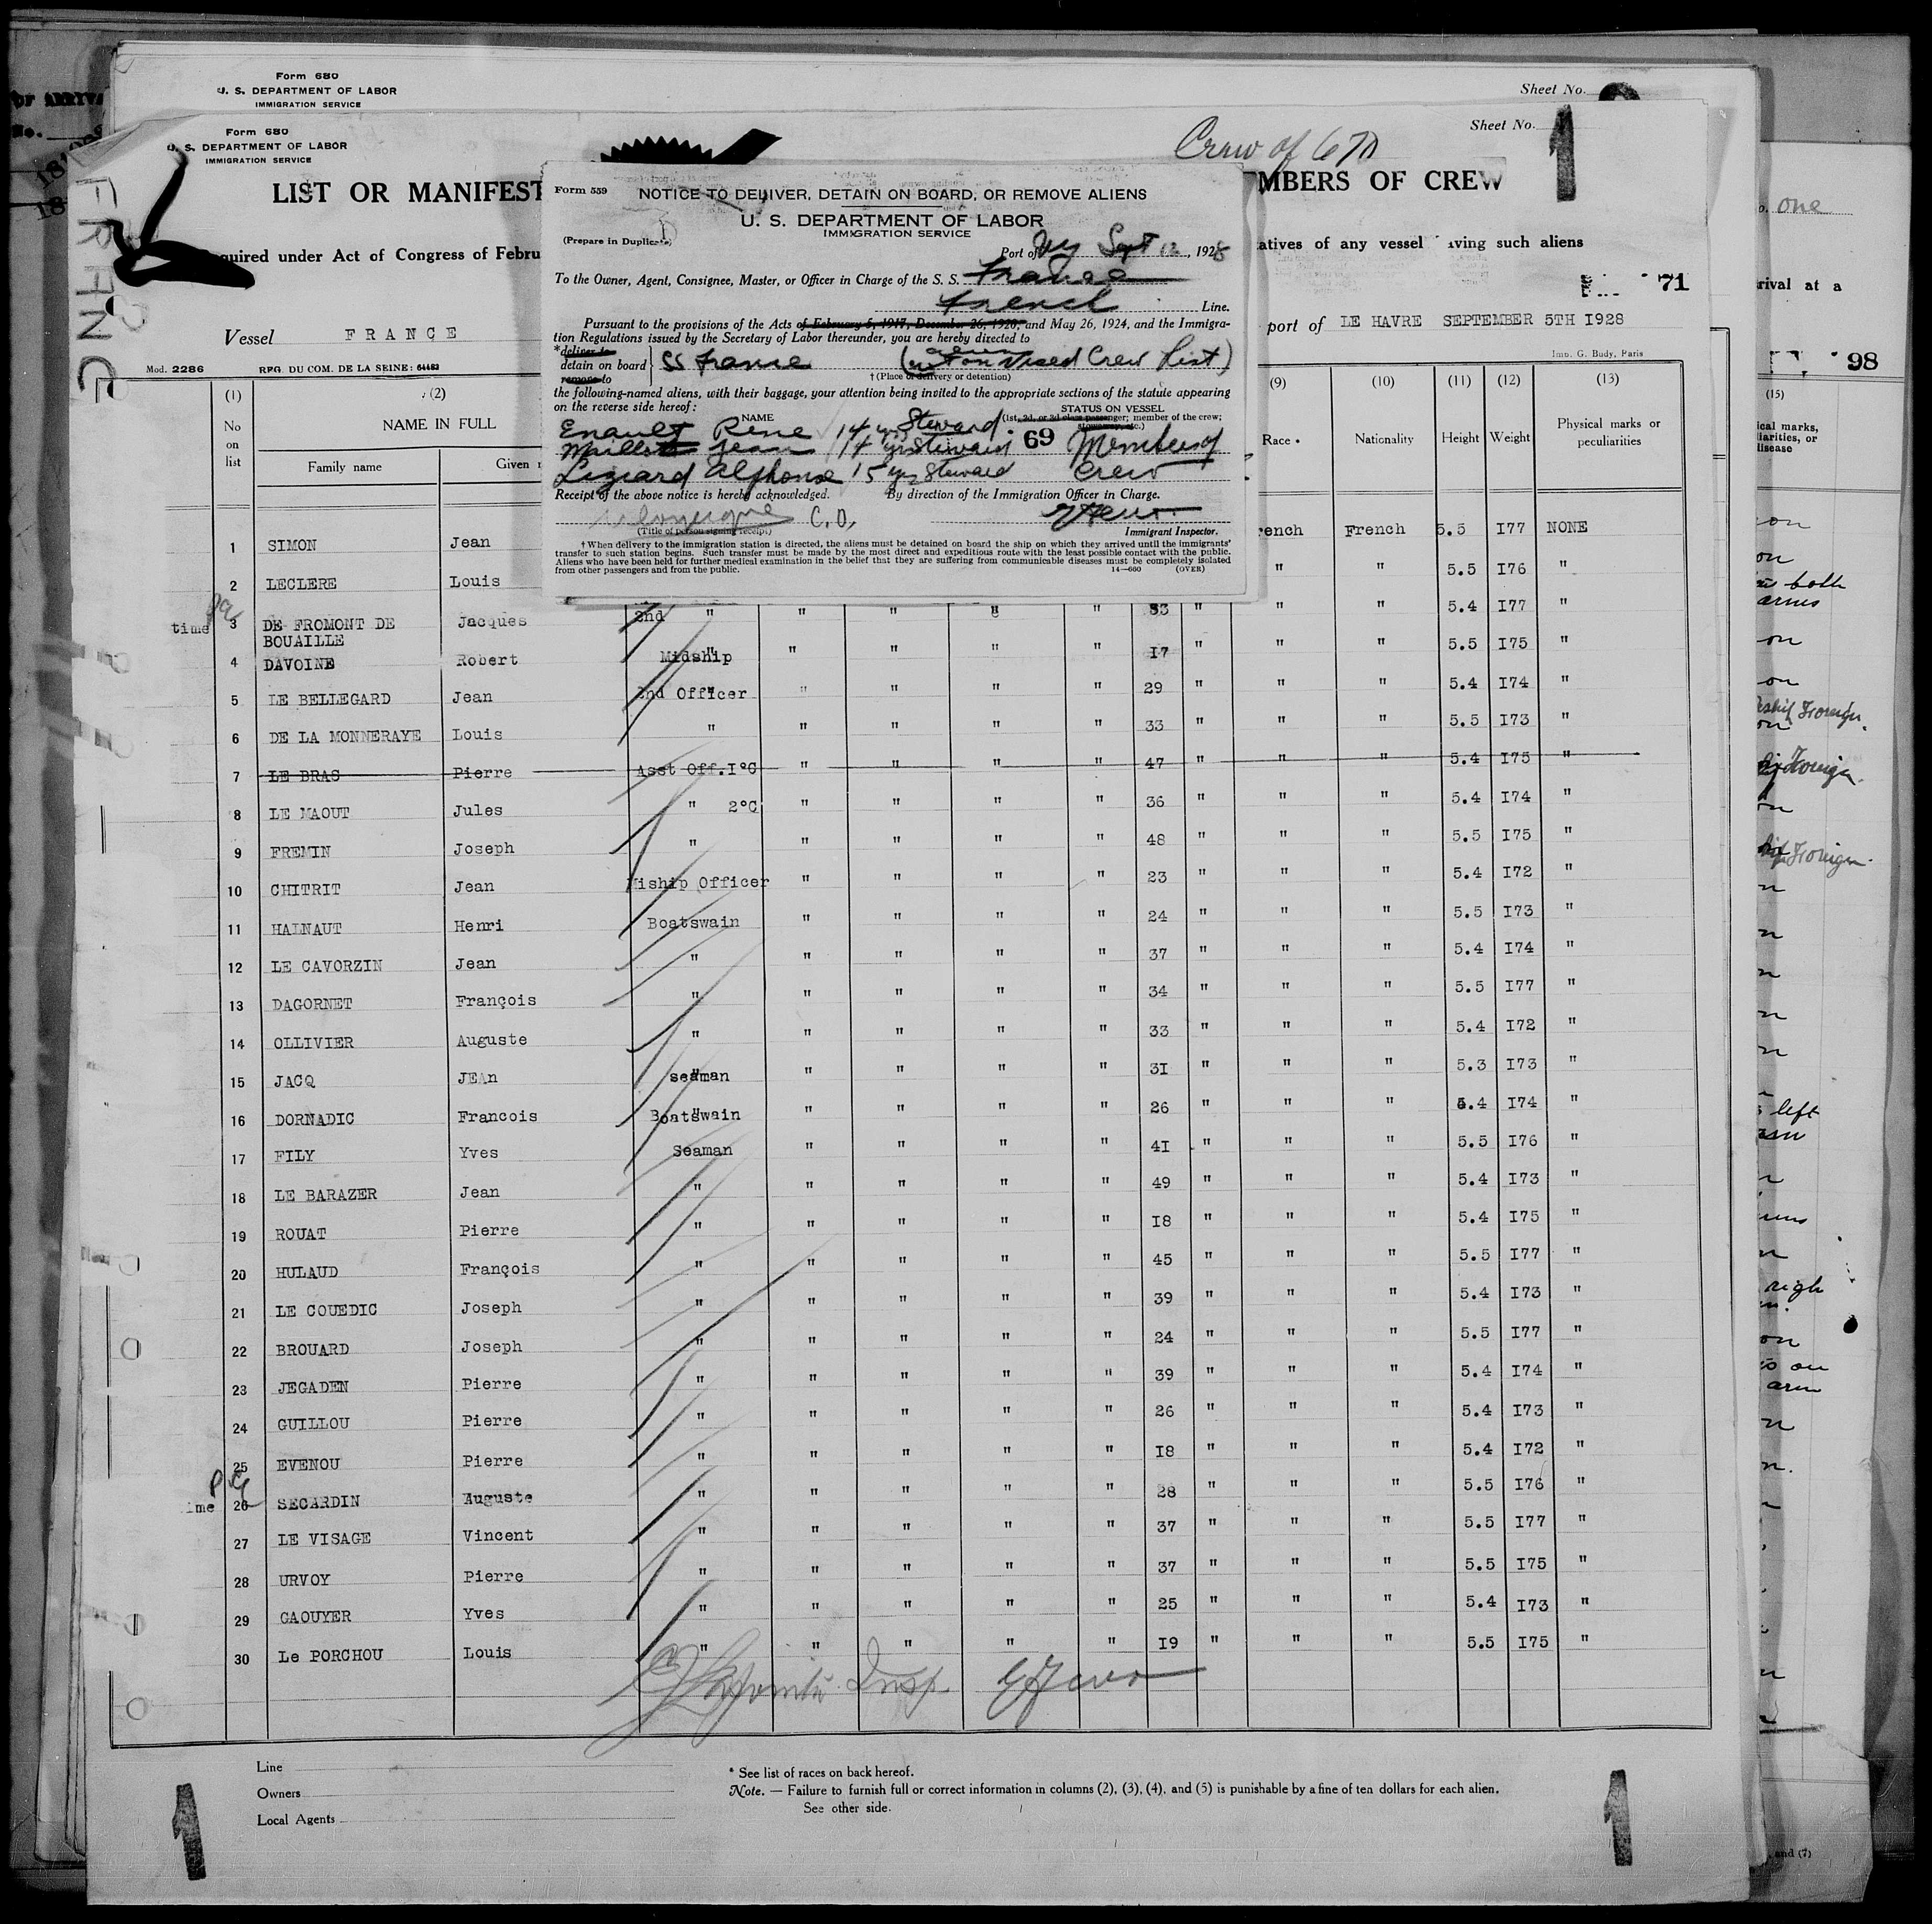 Form 680
U. S. DEPARTMENT OF LABOR
IMMIGRATION SERVICE
Sheet No.
Form 680
U. S. DEPARTMENT OF LABOR
IMMIGRATION SERVICE
Sheet No. 1
Crew of 670
FRANCE
LIST OR MANIFEST
MBERS OF CREW
quired under Act of Congress of Febru
tatives of any vessel aving such aliens
71
Vessel FRANCE
port of LE HAVRE SEPTEMBER 5TH I928
Mod. 2286 REG. DU COM. DE LA SEINE: 64483
Imp. G. Budy, Paris
Form 559
NOTICE TO DELIVER, DETAIN ON BOARD, OR REMOVE ALIENS
U. S. DEPARTMENT OF LABOR
IMMIGRATION SERVICE
(Prepare in Duplicate)
Port of NY Sept 12, 1928
To the Owner, Agent, Consignee, Master, or Officer in Charge of the S. S. France
French Line.
Pursuant to the provisions of the Acts of February 5, 1917, December 26, 1920, and May 26, 1924, and the Immigra-
tion Regulations issued by the Secretary of Labor thereunder, you are hereby directed to
*deliver to
detain on board
remove to
SS France (not on visaed Crew List)
†(Place of delivery or detention)
the following-named aliens, with their baggage, your attention being invited to the appropriate sections of the statute appearing
on the reverse side hereof:
NAME
STATUS ON VESSEL
(1st, 2d, or 3d class passenger; member of the crew;
stowaway, etc.)
Enault Rene 14 yrs Steward.
Maillot Jean 14 yrs Steward 69 Member of
Leziard Alphonse 15 yrs Steward Crew
Receipt of the above notice is hereby acknowledged. By direction of the Immigration Officer in Charge.
C. O.
(Title of person signing receipt)
Immigrant Inspector.
†When delivery to the immigration station is directed, the aliens must be detained on board the ship on which they arrived until the immigrants'
transfer to such station begins. Such transfer must be made by the most direct and expeditious route with the least possible contact with the public.
Aliens who have been held for further medical examination in the belief that they are suffering from communicable diseases must be completely isolated
from other passengers and from the public.
14—660 (OVER)
(1) (2) (9) (10) (11) (12) (13)
No on list NAME IN FULL Race * Nationality Height Weight Physical marks or peculiarities
Family name Given
1 SIMON Jean rench French 5.5 I77 NONE
2 LECLERE Louis " " 5.5 I76 "
time 3 DE FROMONT DE BOUAILLE Jacques 2nd " " " " " 33 " " " 5.4 I77 "
4 DAVOINE Robert Midship " " " " I7 " " " 5.5 I75 "
5 LE BELLEGARD Jean 2nd Officer " " " " 29 " " " 5.4 I74 "
6 DE LA MONNERAYE Louis " " " " " 33 " " " 5.5 I73 "
7 LE BRAS Pierre Asst Off.I°C " " " " 47 " " " 5.4 I75 "
8 LE MAOUT Jules " 2°C " " " " 36 " " " 5.4 I74 "
9 FREMIN Joseph " " " " " 48 " " " 5.5 I75 "
10 CHITRIT Jean Miship Officer " " " " 23 " " " 5.4 I72 "
11 HAINAUT Henri Boatswain " " " " 24 " " " 5.5 I73 "
12 LE CAVORZIN Jean " " " " " 37 " " " 5.4 I74 "
13 DAGORNET François " " " " " 34 " " " 5.5 I77 "
14 OLLIVIER Auguste " " " " " 33 " " " 5.4 I72 "
15 JACQ JEAn seaman " " " " 3I " " " 5.3 I73 "
16 DORNADIC Francois Boatswain " " " " 26 " " " 5.4 I74 "
17 FILY Yves Seaman " " " " 4I " " " 5.5 I76 "
18 LE BARAZER Jean " " " " " 49 " " " 5.4 I73 "
19 ROUAT Pierre " " " " " I8 " " " 5.4 I75 "
20 HULAUD François " " " " " 45 " " " 5.5 I77 "
21 LE COUEDIC Joseph " " " " " 39 " " " 5.4 I73 "
22 BROUARD Joseph " " " " " 24 " " " 5.5 I77 "
23 JEGADEN Pierre " " " " " 39 " " " 5.4 I74 "
24 GUILLOU Pierre " " " " " 26 " " " 5.4 I73 "
25 EVENOU Pierre " " " " " I8 " " " 5.4 I72 "
ime 26 SECARDIN Auguste " " " " " 28 " " " 5.5 I76 "
27 LE VISAGE Vincent " " " " " 37 " " " 5.5 I77 "
28 URVOY Pierre " " " " " 37 " " " 5.5 I75 "
29 GAOUYER Yves " " " " " 25 " " " 5.4 I73 "
30 Le PORCHOU Louis " " " " " I9 " " " 5.5 I75 "
Insp.
Line
Owners
Local Agents
* See list of races on back hereof.
Note. — Failure to furnish full or correct information in columns (2), (3), (4), and (5) is punishable by a fine of ten dollars for each alien.
See other side.
1 1
one
rival at a
98
(15)
both
arms
Foreign.
Foreign
Foreign.
left
on
arm
and (7)